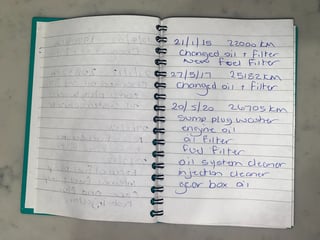 21/1/15 22000 KM
Changed oil + filter
New fuel filter
27/5/17 25182 KM
Changed oil + filter
20/5/20 26705 KM
Sump plug washer
engine oil
oil filter
fuel filter
oil system cleaner
injection cleaner
gear box oil